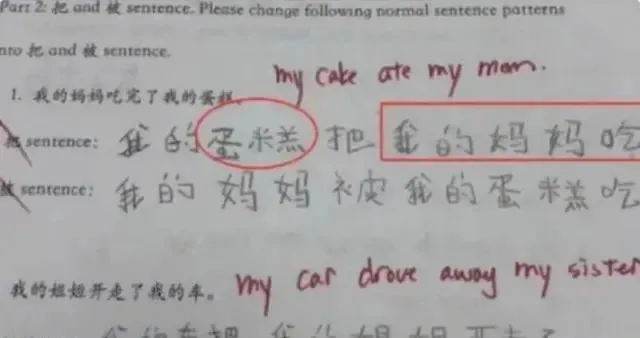 Part 2: 把 and 被 sentence. Please change following normal sentence patterns
nto 把 and 被 sentence.
my cake ate my mom.
1. 我的妈妈吃完了我的蛋糕。
把 sentence: 我的蛋糕把我的妈妈吃
被 sentence: 我的妈妈被我的蛋糕吃
my car drove away my sister
我的姐姐开走了我的车。